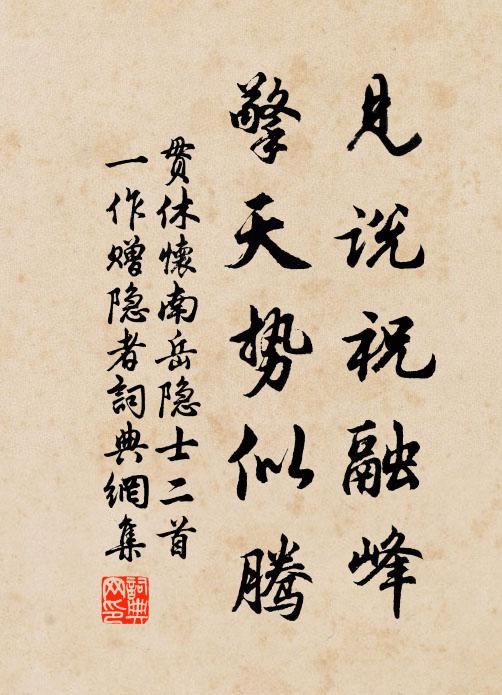 見说祝融峰
擎天势似腾
贯休懷南岳隐士二首
一作赠隐者詞典網集
詞典网印